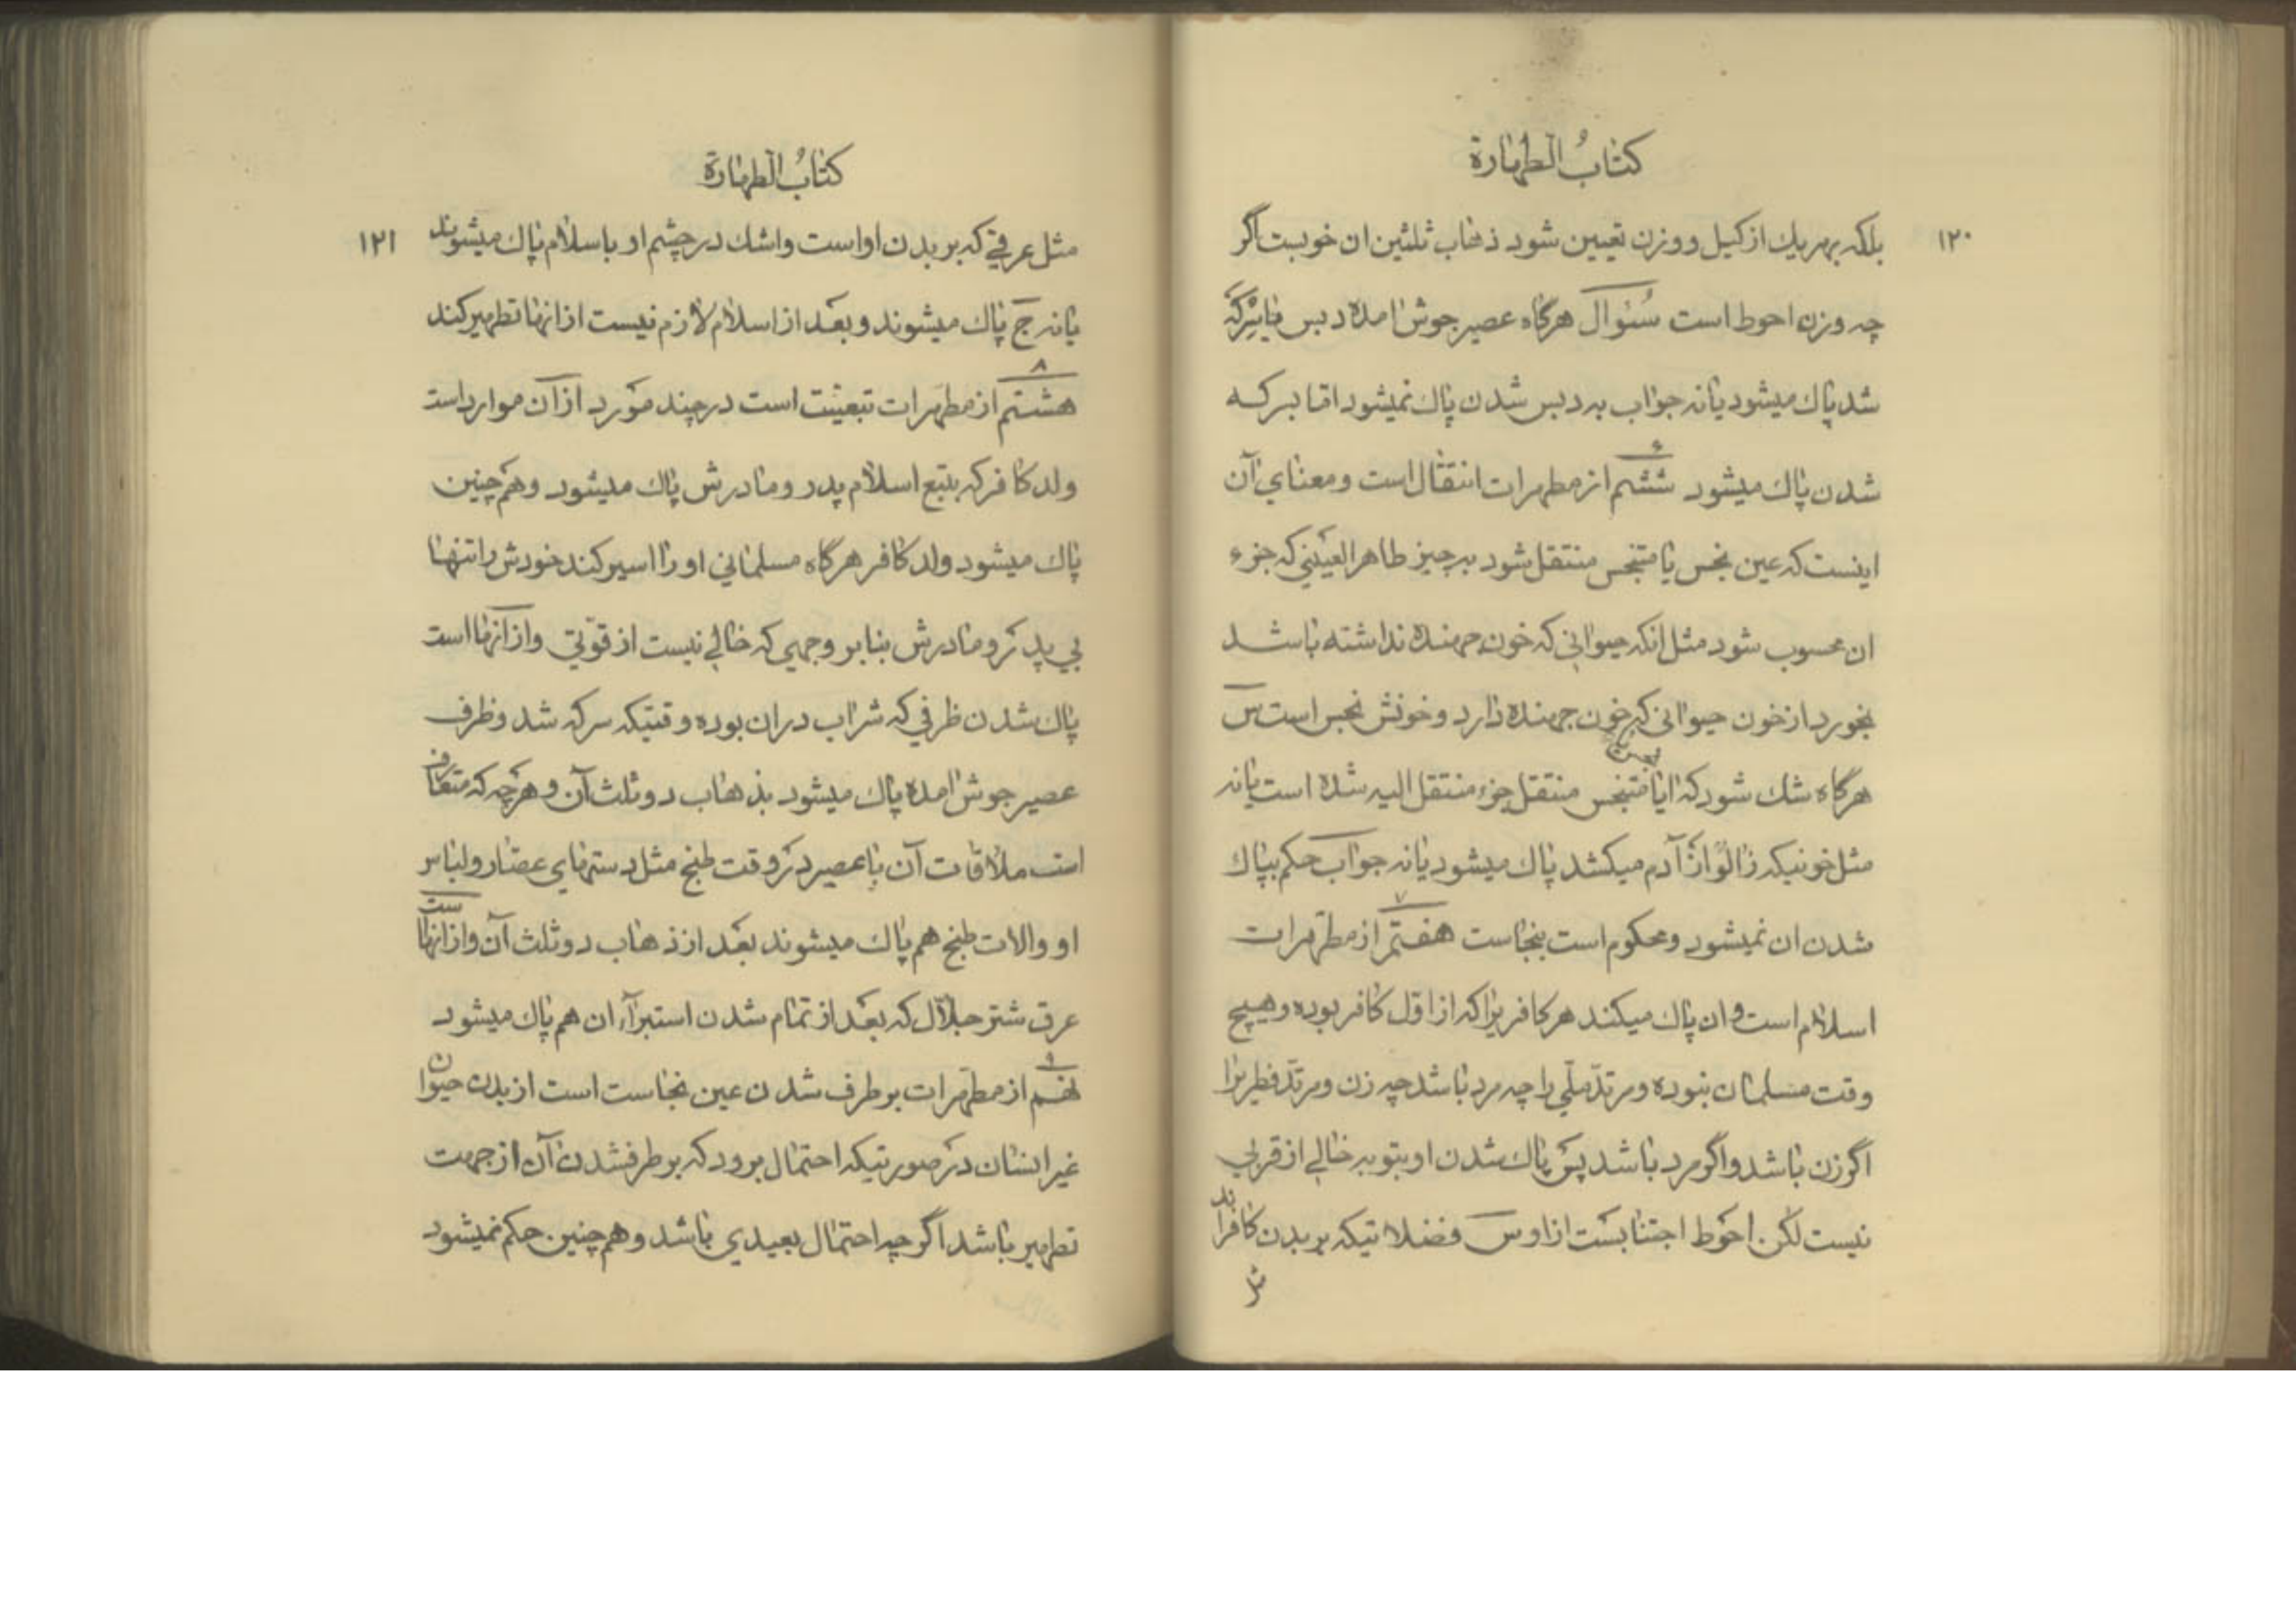 كتابُ الطهارة
١٢٠
بلكه بهر يك از كيل و وزن تعيين شود ذهاب ثلثين ان خوبست اگر
چه وزن احوط است سُئوال هرگاه عصير جوش امده دبس يا سركه
شد پاك ميشود يا نه جواب به دبس شدن پاك نميشود امّا بسركه
شدن پاك ميشود ششم از مطهرات انتقال است و معناي آن
۶
اينست كه عين نجس يا متنجس منتقل شود به چيز طاهر العيني كه جزء
ان محسوب شود مثل انكه حيواني كه خون جهنده نداشته باشد
بخورد از خون حيواني كه خون جهنده دارد و خونش نجس است س
هرگاه شك شود كه ايا متنجس منتقل جزء منتقل اليه شده است يا نه
مثل خونيكه زالو از آدم ميكشد پاك ميشود يا نه جواب حكم بپاك
شدن ان نميشود و محكوم است بنجاست هفتم از مطهرات
٧
اسلام است و ان پاك ميكند هر كافريرا كه از اوّل كافر بوده و هيچ
وقت مسلمان نبوده و مرتدّ ملّي را چه مرد باشد چه زن و مرتدّ فطريرا
اگر زن باشد و اگر مرد باشد پس پاك شدن او بتوبه خالي از قربي
نيست لكن احوط اجتنابست از او س فضلاتيكه بر بدن كافراند
مثل
كتابُ الطهارة
١٢١
مثل عرقي كه بر بدن او است و اشك در چشم او باسلام پاك ميشوند
يا نه ج پاك ميشوند و بعد از اسلام لازم نيست از انها تطهير كند
٨
هشتم از مطهرات تبعيّت است در چند مورد از آن موارد است
ولد كافر كه بتبع اسلام پدر و مادرش پاك ميشود و هم چنين
پاك ميشود ولد كافر هرگاه مسلماني او را اسير كند خودش را تنها
بي پدر و مادرش بنابر وجهي كه خالي نيست از قوّتي و از انها است
پاك شدن ظرفي كه شراب در ان بوده وقتيكه سركه شد و ظرف
عصير جوش امده پاك ميشود بذهاب دو ثلث آن و هر چه كه متعارف
است ملاقات آن با عصير در وقت طبخ مثل دستهاي عصّار و لباس
او و الات طبخ هم پاك ميشوند بعد از ذهاب دو ثلث آن و از انها است
عرق شتر جلّال كه بعد از تمام شدن استبراء ان هم پاك ميشود
٩
نهم از مطهرات بر طرف شدن عين نجاست است از بدن حيوان
غير انسان در صورتيكه احتمال برود كه بر طرفشدن آن از جهت
تطهير باشد اگر چه احتمال بعيدي باشد و هم چنين حكم نميشود